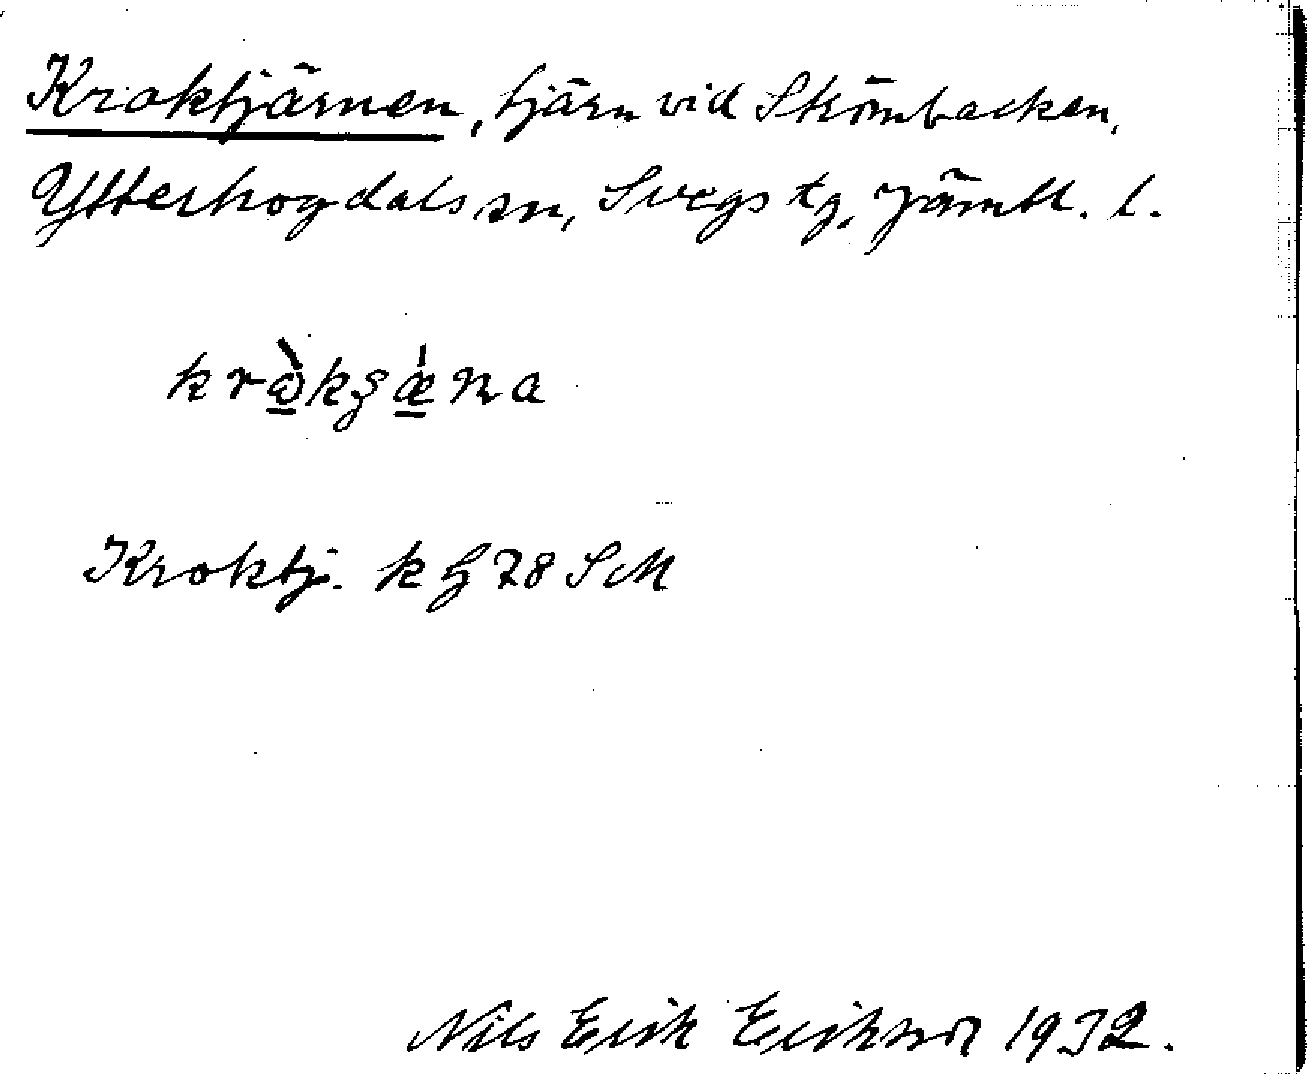 Kroktjärnen, tjärn vid Strömbacken,
Ytterhogdals sn, Svegs tg, Jämtl. l.
Kroktj. k
Nils Erik Erikson 1932.